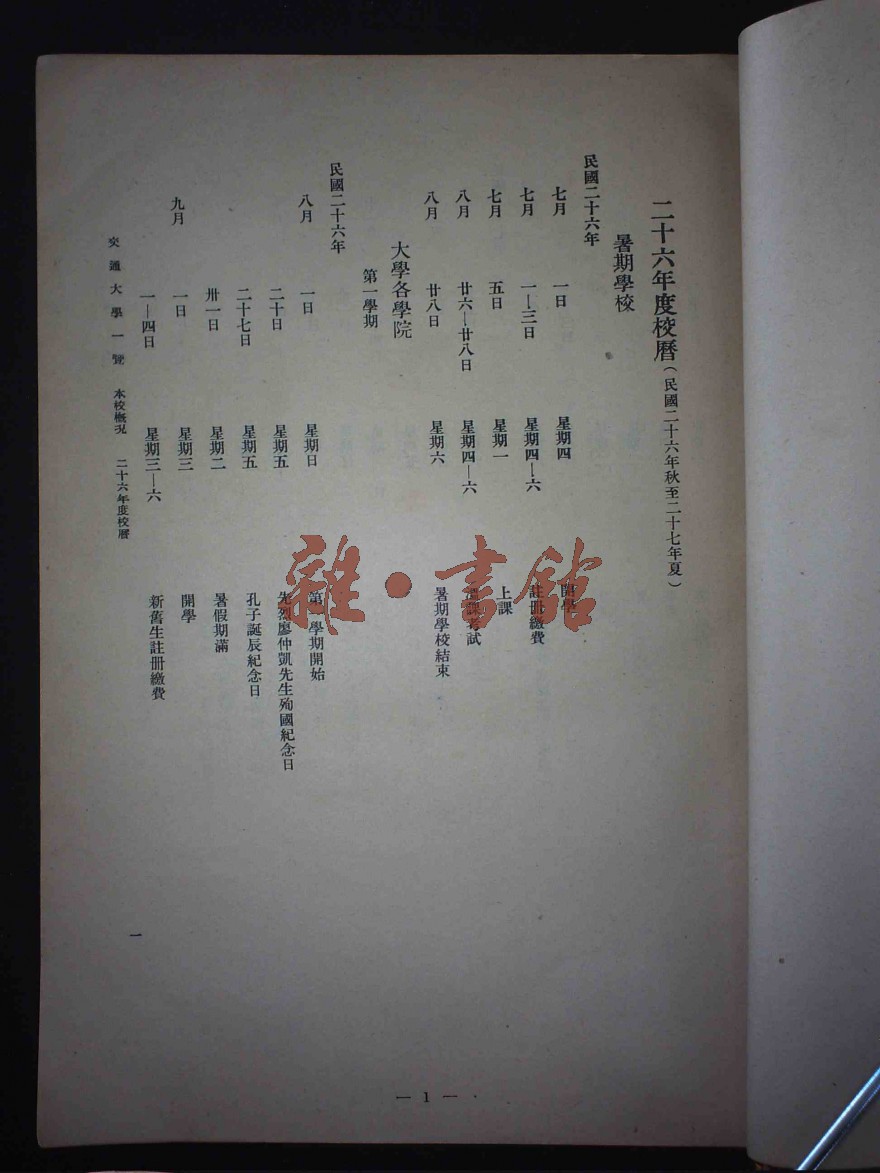 二十六年度校曆（民國二十六年秋至二十七年夏）
暑期學校
民國二十六年
七月 一日 星期四 開學
七月 一—三日 星期四—六 註冊繳費
七月 五日 星期一 上課
八月 廿六—廿八日 星期四—六 考試
八月 廿八日 星期六 暑期學校結束
大學各學院
第一學期
民國二十六年
八月 一日 星期日 第一學期開始
二十日 星期五 先烈廖仲凱先生殉國紀念日
二十七日 星期五 孔子誕辰紀念日
卅一日 星期二 暑假期滿
九月 一日 星期三 開學
一—四日 星期三—六 新舊生註冊繳費
交通大學一覽 本校概況 二十六年度校曆
一
— 1 —
雜·書館